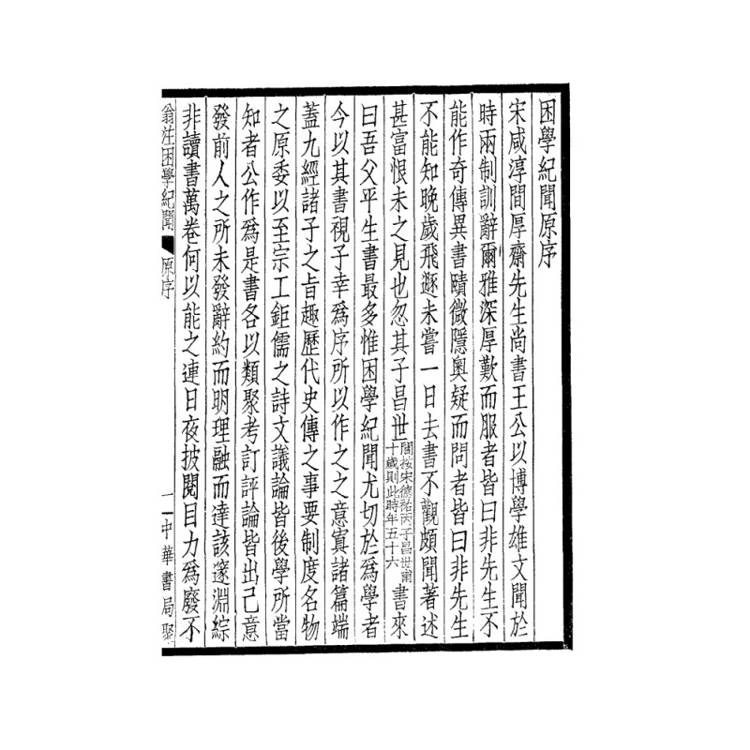 困學紀聞原序
宋咸淳間厚齋先生尚書王公以博學雄文聞於
時兩制訓辭爾雅深厚歎而服者皆曰非先生不
能作奇傳異書賾微隱奧疑而問者皆曰非先生
不能知晚歲飛遯未嘗一日去書不觀頗聞著述
甚富恨未之見也忽其子昌世閻按宋德祐丙子昌世甫十歲則此時年五十六書來
曰吾父平生書最多惟困學紀聞尤切於為學者
今以其書視子幸為序所以作之之意寘諸篇端
蓋九經諸子之旨趣歷代史傳之事要制度名物
之原委以至宗工鉅儒之詩文議論皆後學所當
知者公作為是書各以類聚考訂評論皆出己意
發前人之所未發辭約而明理融而達該邃淵綜
非讀書萬卷何以能之連日夜披閱目力為廢不
翁注困學紀聞 原序 一 中華書局聚